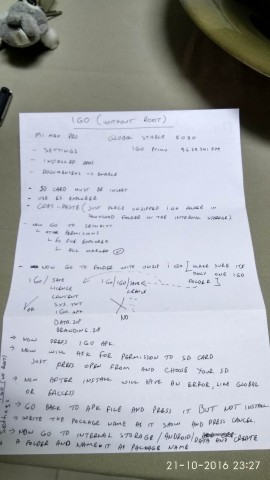 IGO (WITHOUT ROOT)
MI MAX PRO GLOBAL STABLE 8030
- SETTINGS IGO PRIMO
- INSTALLED APPS
- DOCUMENTS -> ENABLE
- SD CARD MUST BE INSERT
- USE ES EXPLORER
- COPY-PASTE (JUST PLACE UNZIPPED IGO FOLDER IN
DOWNLOAD FOLDER IN THE INTERNAL STORAGE)
- NOW GO TO SECURITY
OTHER PERMISSIONS
ES FILE EXPLORER
ALL MARKED
- NOW GO TO FOLDER WITH UNZIP IGO [MAKE SURE ITS
ONLY ONE IGO
FOLDER]
IGO/SAVE
LICENSE
CONTENT
SYS.TXT
IGO.APK
DATA.ZIP
BRANDING.ZIP
OK
NO
-> NOW PRESS IGO APK.
-> NOW WILL ASK FOR PERMISSION TO SD CARD
JUST PRESS OPEN FROM AND CHOOSE YOUR SD
-> NOW AFTER INSTALL WILL HAVE AN ERROR, LIKE GLOBAL
OR
-> GO BACK TO APK FILE AND PRESS IT BUT NOT INSTALL
-> WRITE THE PACKAGE NAME AS IT SHOWN AND PRESS CANCEL.
-> NOW GO TO INTERNAL STORAGE/ANDROID/ AND CREATE
A FOLDER AND NAME IT AS PACKAGE NAME
21-10-2016 23:27